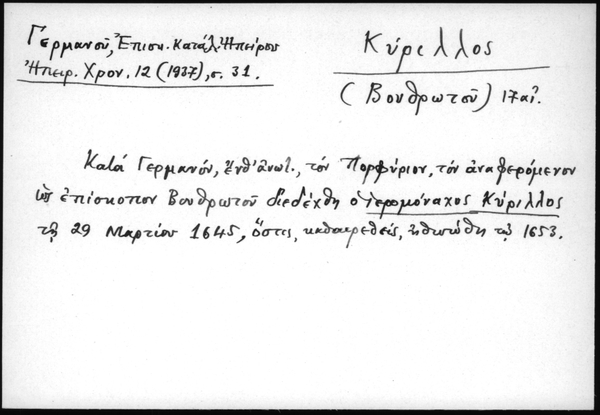 Γερμανοῦ, Ἐπισκ. Κατάλ. Ἠπείρου
Ἠπειρ. Χρον. 12 (1937), σ. 31.
Κύριλλος
(Βουθρωτοῦ) 17 αἰ.
Κατά Γερμανόν, ἔνθ' ἀνωτ., τόν Πορφύριον, τόν ἀναφερόμενον
ὡς ἐπίσκοπον Βουθρωτοῦ διεδέχθη ὁ ἱερομόναχος Κύριλλος
τῇ 29 Μαρτίου 1645, ὅστις, καθαιρεθείς, ἠθῳώθη τῷ 1653.